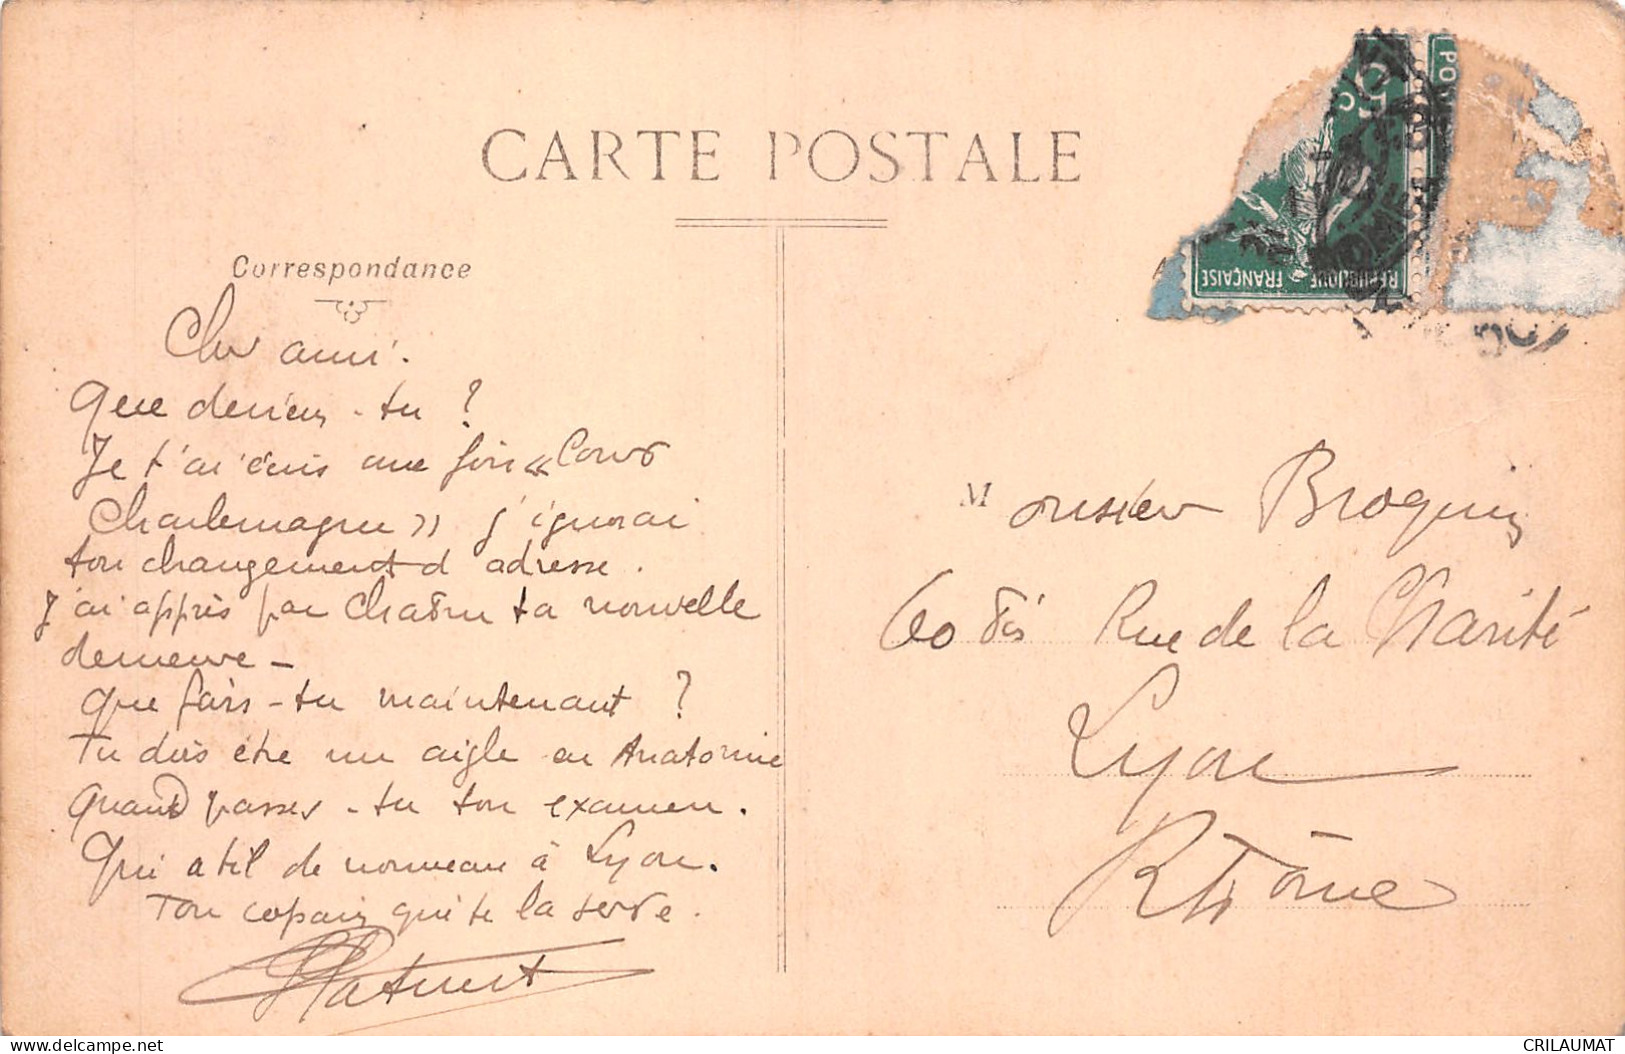 CARTE POSTALE
Correspondance
Cher ami.
Que deviens-tu ?
Je t'ai écris une fois « Cours
Charlemagne » j'ignorai
ton changement d adresse.
J'ai appris par ta nouvelle
demeure -
Que fais-tu maintenant ?
Tu dois être un aigle en Anatomie
Quand passes-tu ton examen.
Qui a til de nouveau à Lyon.
Ton copain qui te la serre.
5 c
PO
REPUBLIQUE FRANÇAISE
Monsieur Broquin
60 bis Rue de la Charité
Lyon
Rhône
delcampe.net
CRILAUMAT